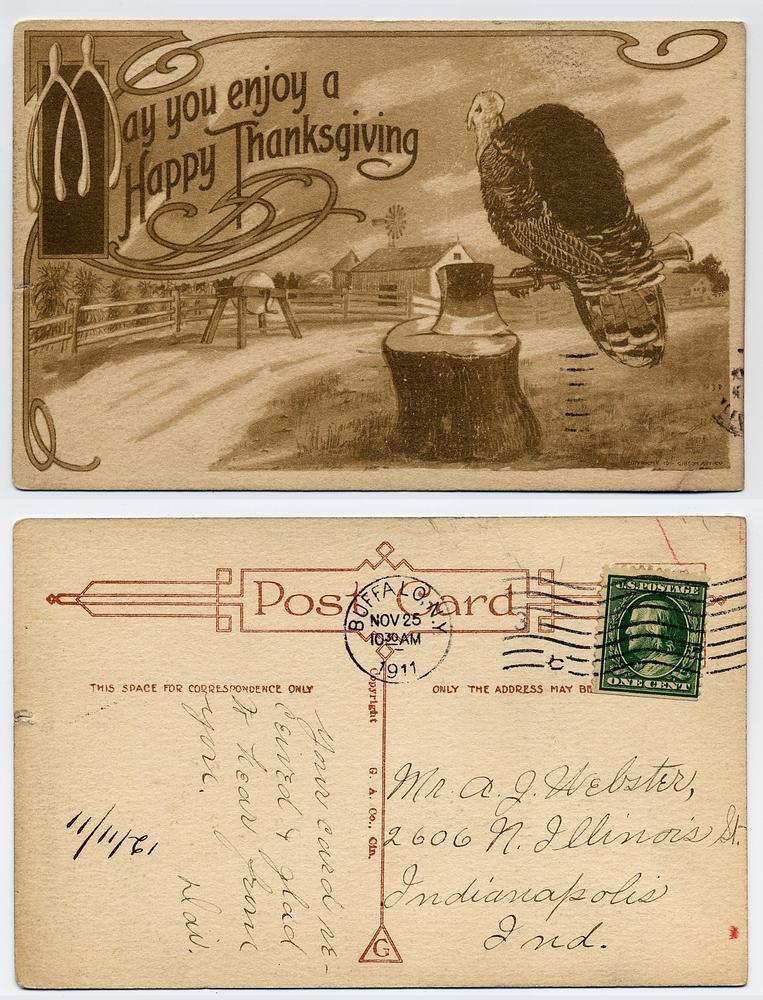 May you enjoy a
Happy Thanksgiving
Post Card
BUFFALO, N.Y.
NOV 25
10 30 AM
1911
U.S. POSTAGE
ONE CENT
THIS SPACE FOR CORRESPONDENCE ONLY
ONLY THE ADDRESS MAY BE
Copyright G. A. Co., Cin.
G
Your card re-
ceived & glad
to hear from
you.
Mr. A. J. Webster,
2606 N. Illinois St.
Indianapolis
Ind.